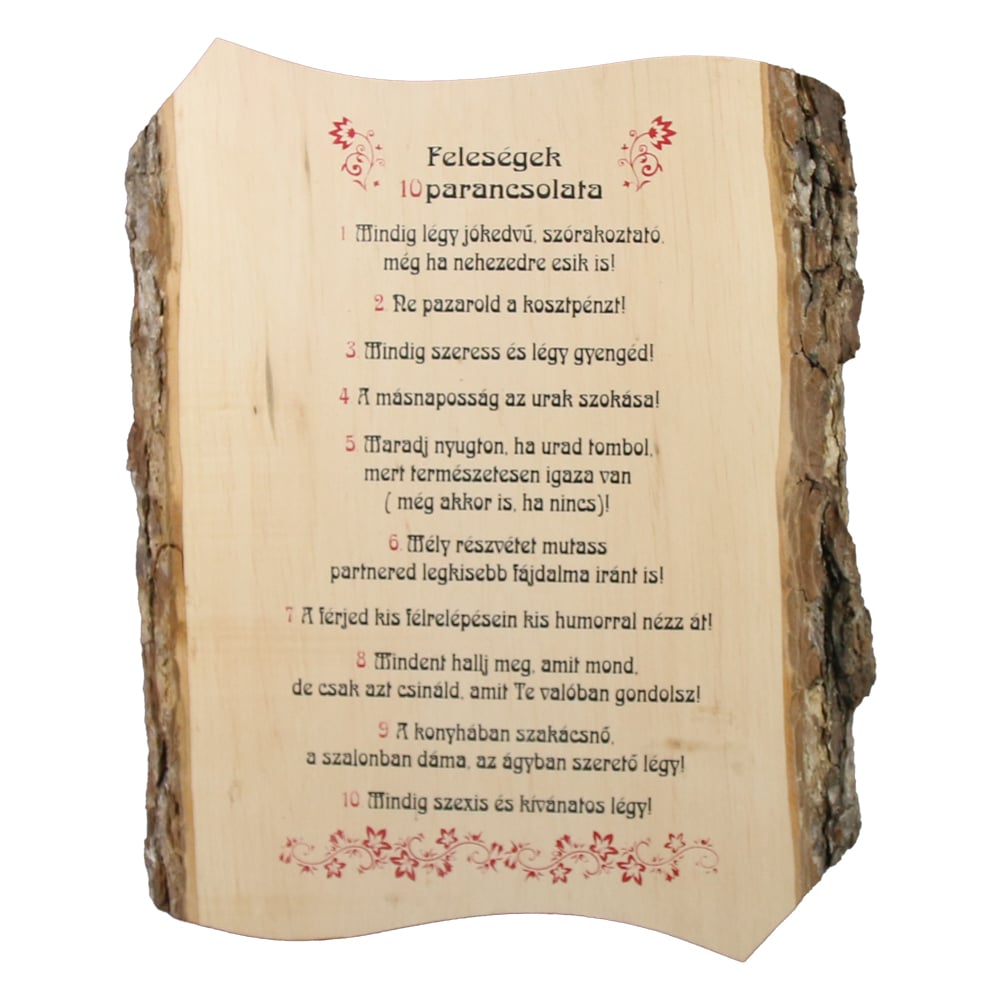 Feleségek
10 parancsolata
1 Mindig légy jókedvű, szórakoztató,
még ha nehezedre esik is!
2. Ne pazarold a kosztpénzt!
3. Mindig szeress és légy gyengéd!
4 A másnaposság az urak szokása!
5. Maradj nyugton, ha urad tombol,
mert természetesen igaza van
( még akkor is, ha nincs)!
6. Mély részvétet mutass
partnered legkisebb fájdalma iránt is!
7 A férjed kis félrelépésein kis humorral nézz át!
8 Mindent hallj meg, amit mond,
de csak azt csináld, amit Te valóban gondolsz!
9 A konyhában szakácsnő,
a szalonban dáma, az ágyban szerető légy!
10. Mindig szexis és kívánatos légy!